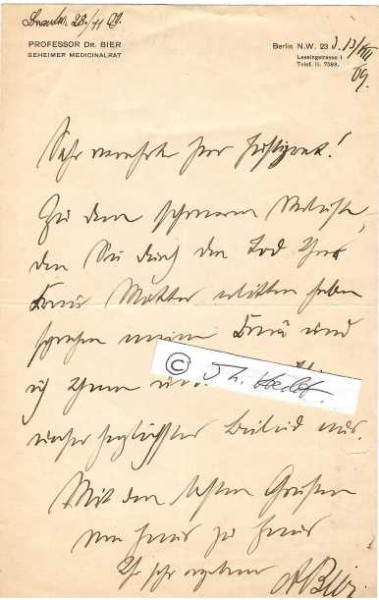 20/11 09.
PROFESSOR DR. BIER
GEHEIMER MEDICINALRAT
Berlin N.W. 23 d. 13/VIII
Lessingstrasse 1
09.
Telef. II. 7393.
Sehr verehrter Herr Justizrat!
Zu dem schweren Verluste,
den Sie durch den Tod Ihrer
Frau Mutter erlitten haben
sprechen meine Frau und
ich Ihnen
©
unser herzlichstes Beileid aus.
Mit den besten Grüßen
von Haus zu Haus
Ihr sehr ergebener
A Bier.